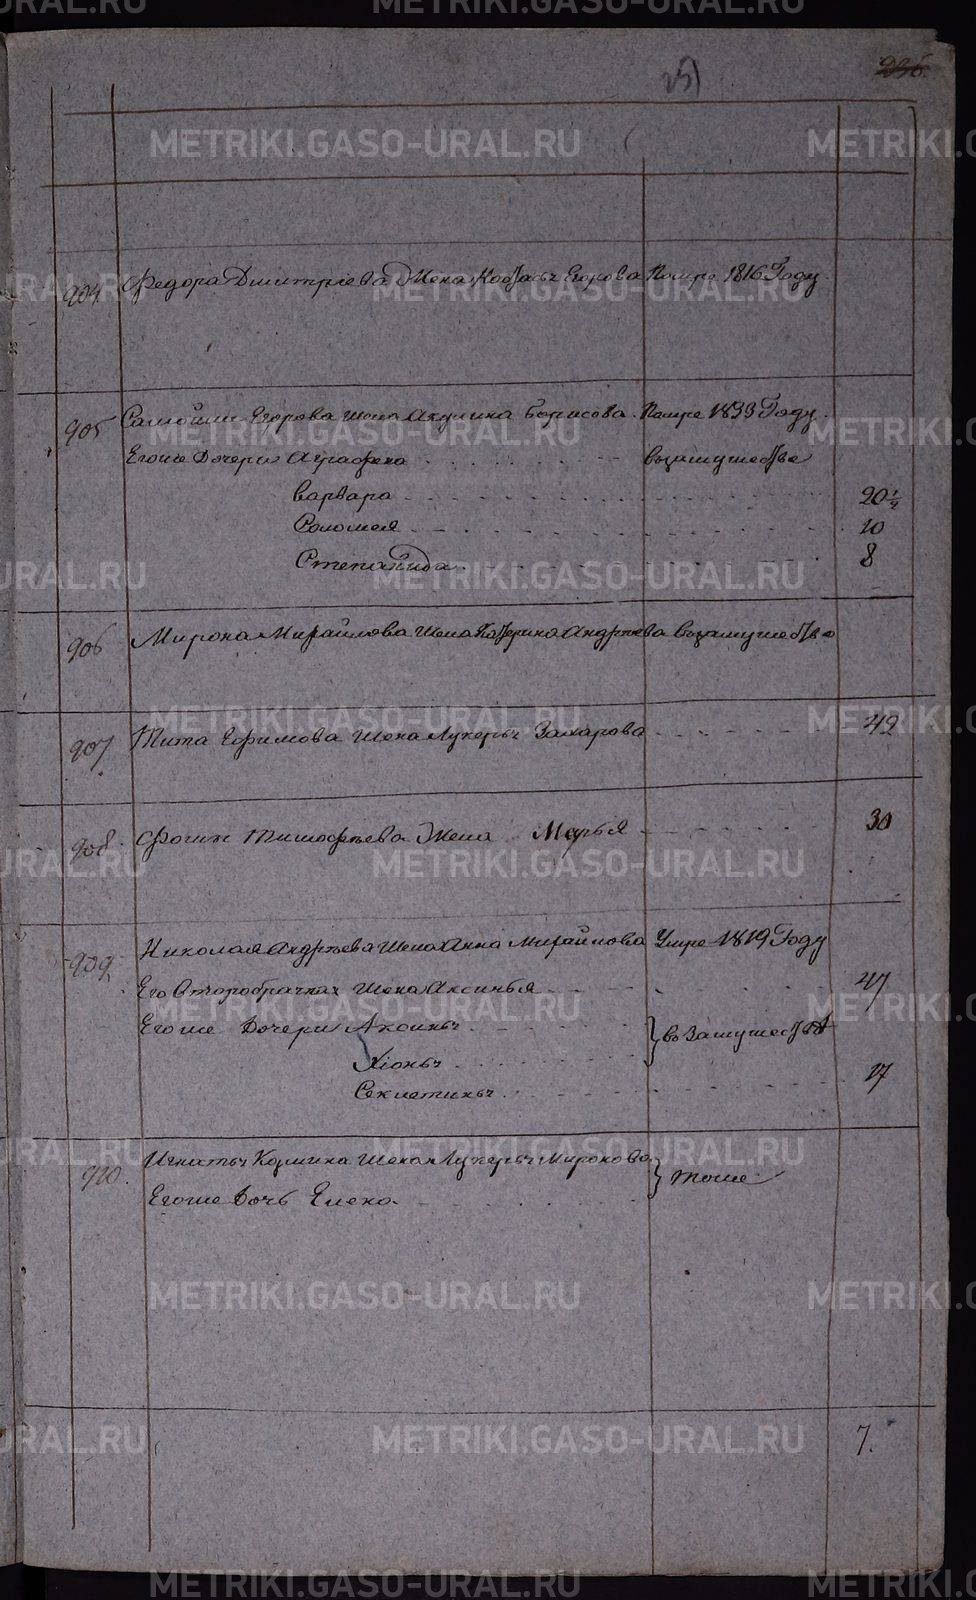 251
236.
904 Федора Дмитрiева Жена Егорова Помре 1816 Году.
905 Самойлы Егорова жена Акулина Борисова. Помре 1833 Году.
Егоже Дочери Аграфена взамужестве
Варвара 20½
Соломея 10
Степанида 8
906 Мирона Михайлова Жена Катерина Андрѣева взамужестве
907 Тита Ефимова Жена Лукерья Захарова 42
908. Фотия Тимофѣева Жена Марья 30
909 Николая Андрѣева Жена Анна Михайлова Умре 1819 Году
Его Второбрачная Жена Аксинья 47
Егоже Дочери Аксинья } въ Замужествѣ
Хiонья
Секлетинья 17
910. Игнатья Козмина Жена Лукерья Миронова } тоже
Егоже Дочь Елена
7.
METRIKI.GASO-URAL.RU